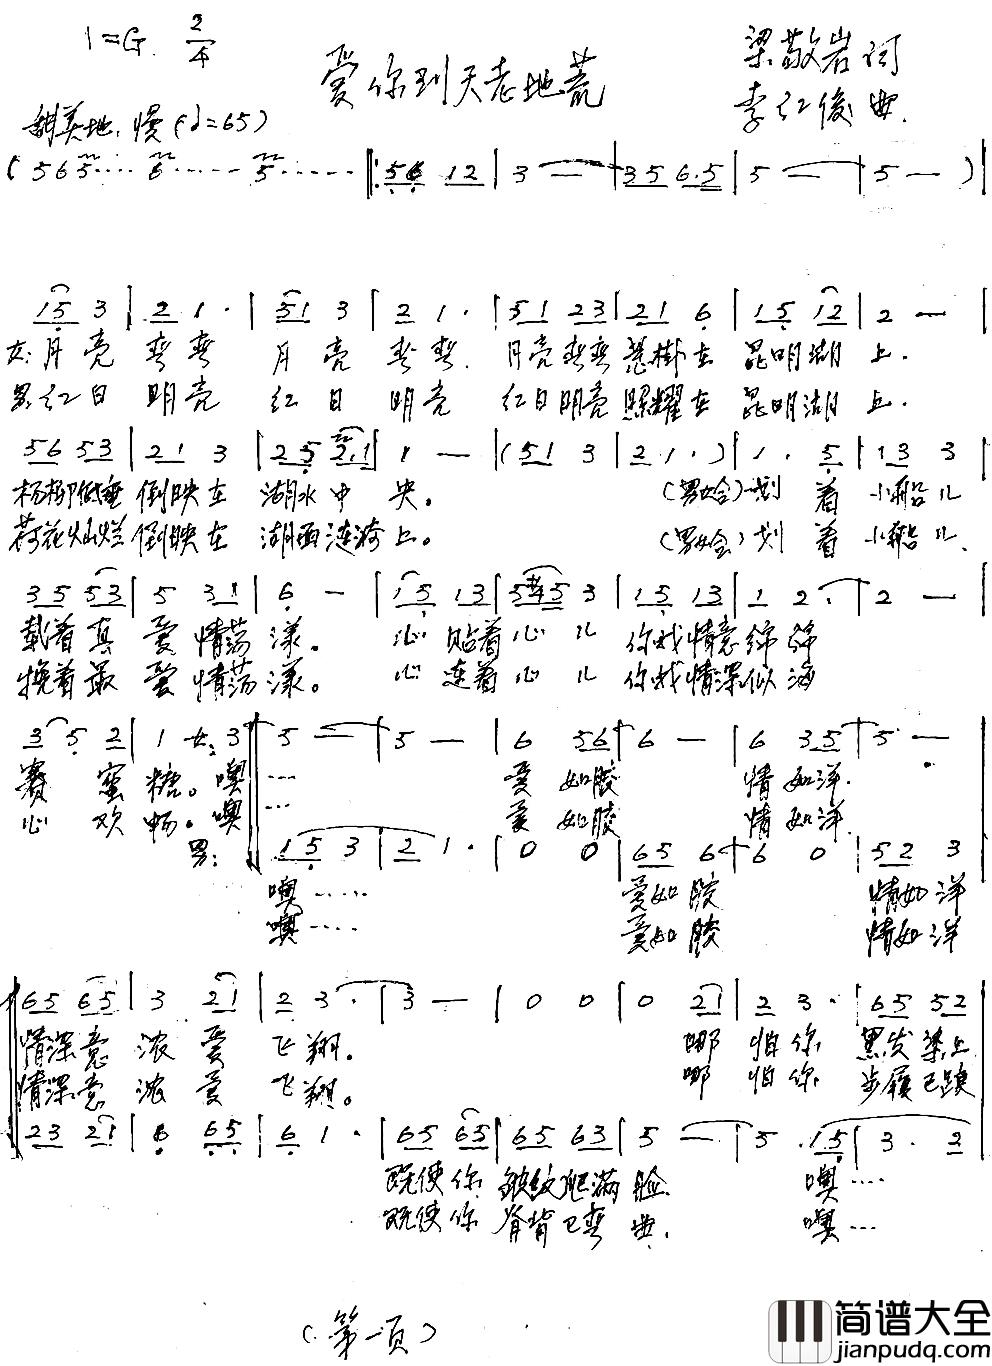 1=G 2/4
爱你到天老地荒
梁敬岩 词
李红俊 曲.
甜美地、慢 (♩=65)
( 5 6 5 .... 6 ...... 5 ...... ‖: 5 6 1 2 | 3 — | 3 5 6·5 | 5 — | 5 — ) |
1 5 3 | 2 1 · | 5 1 3 | 2 1 · | 5 1 2 3 | 2 1 6 | 1 5 1 2 | 2 — |
女: 月亮弯弯 月亮弯弯. 月亮弯弯悬挂在 昆明湖上.
男: 红日明亮 红日明亮 红日明亮照耀在 昆明湖上.
5 6 5 3 | 2 1 3 | 2 5 2·1 | 1 — | ( 5 1 3 | 2 1 · ) | 1 · 5 | 1 3 3 |
杨柳低垂倒映在 湖水中央。 (男女合)划着小船儿
荷花灿烂倒映在 湖面涟漪上。 (男女合)划着小船儿.
3 5 5 3 | 5 3 1 | 6 — | 1 5 1 3 | 5 #4 5 3 | 1 5 1 3 | 1 2 · | 2 — |
载着真爱情荡漾。 心贴着心儿 你我情意绵绵
挽着最爱情荡漾。 心连着心儿 你我情深似海
3 5 2 | 1 女: 3 ‖ 5 — | 5 — | 6 5 6 | 6 — | 6 3 5 | 5 — |
赛蜜糖。噢 .... 爱如胶 情如洋.
心欢畅。噢 .... 爱如胶 情如洋.
男: 1 5 3 | 2 1 · | 0 0 | 6 5 6 | 6 0 | 5 2 3 |
噢 .... 爱如胶 情如洋
噢 .... 爱如胶 情如洋
6 5 6 5 | 3 2 1 | 2 3 · | 3 — | 0 0 | 0 2 1 | 2 3 · | 6 5 5 2 |
情深意浓爱飞翔。 哪怕你 黑发染上
情深意浓爱飞翔。 哪怕你 步履已踉
2 3 2 1 | 6 6 5 | 6 1 · | 6 5 6 5 | 6 5 6 3 | 5 — | 5 · 1 5 | 3 · 2 |
既使你 皱纹爬满脸. 噢 ....
既使你 脊背已弯曲. 噢 ....
(第一页)
简谱大全
jianpudq.com